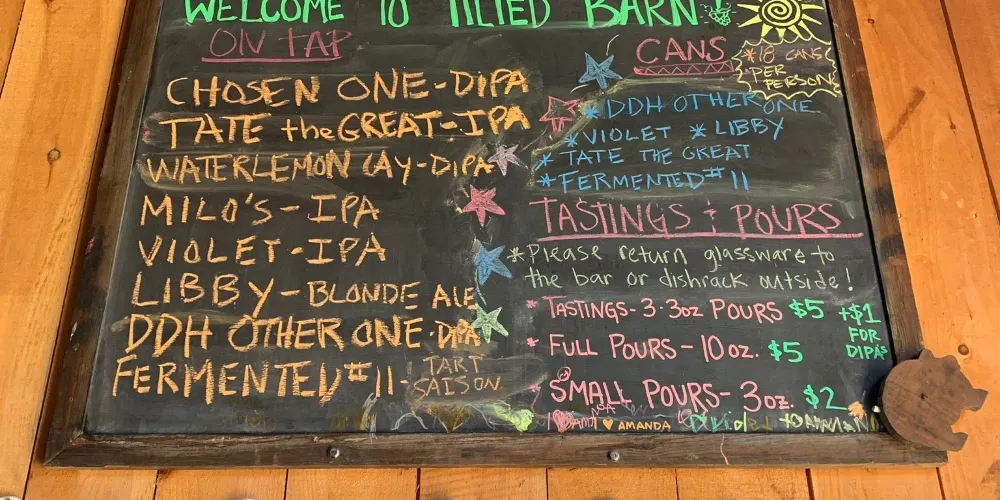 WELCOME TO TILTED BARN!
ON TAP
CHOSEN ONE-DIPA
TATE the GREAT-IPA
WATERLEMON CAY-DIPA
MILO'S-IPA
VIOLET-IPA
LIBBY-BLONDE ALE
DDH OTHER ONE-DIPA
FERMENTED #11-TART
SAISON
CANS
*18 CANS
PER
PERSON
*DDH OTHER ONE
*VIOLET *LIBBY
*TATE THE GREAT
*FERMENTED #11
TASTINGS & POURS
*Please return glassware to
the bar or dishrack outside!
*TASTINGS-3.3oz POURS $5
*FULL POURS-10oz. $5
+$1
FOR
DIPA'S
*SMALL POURS-3oz. $2
AMANDA